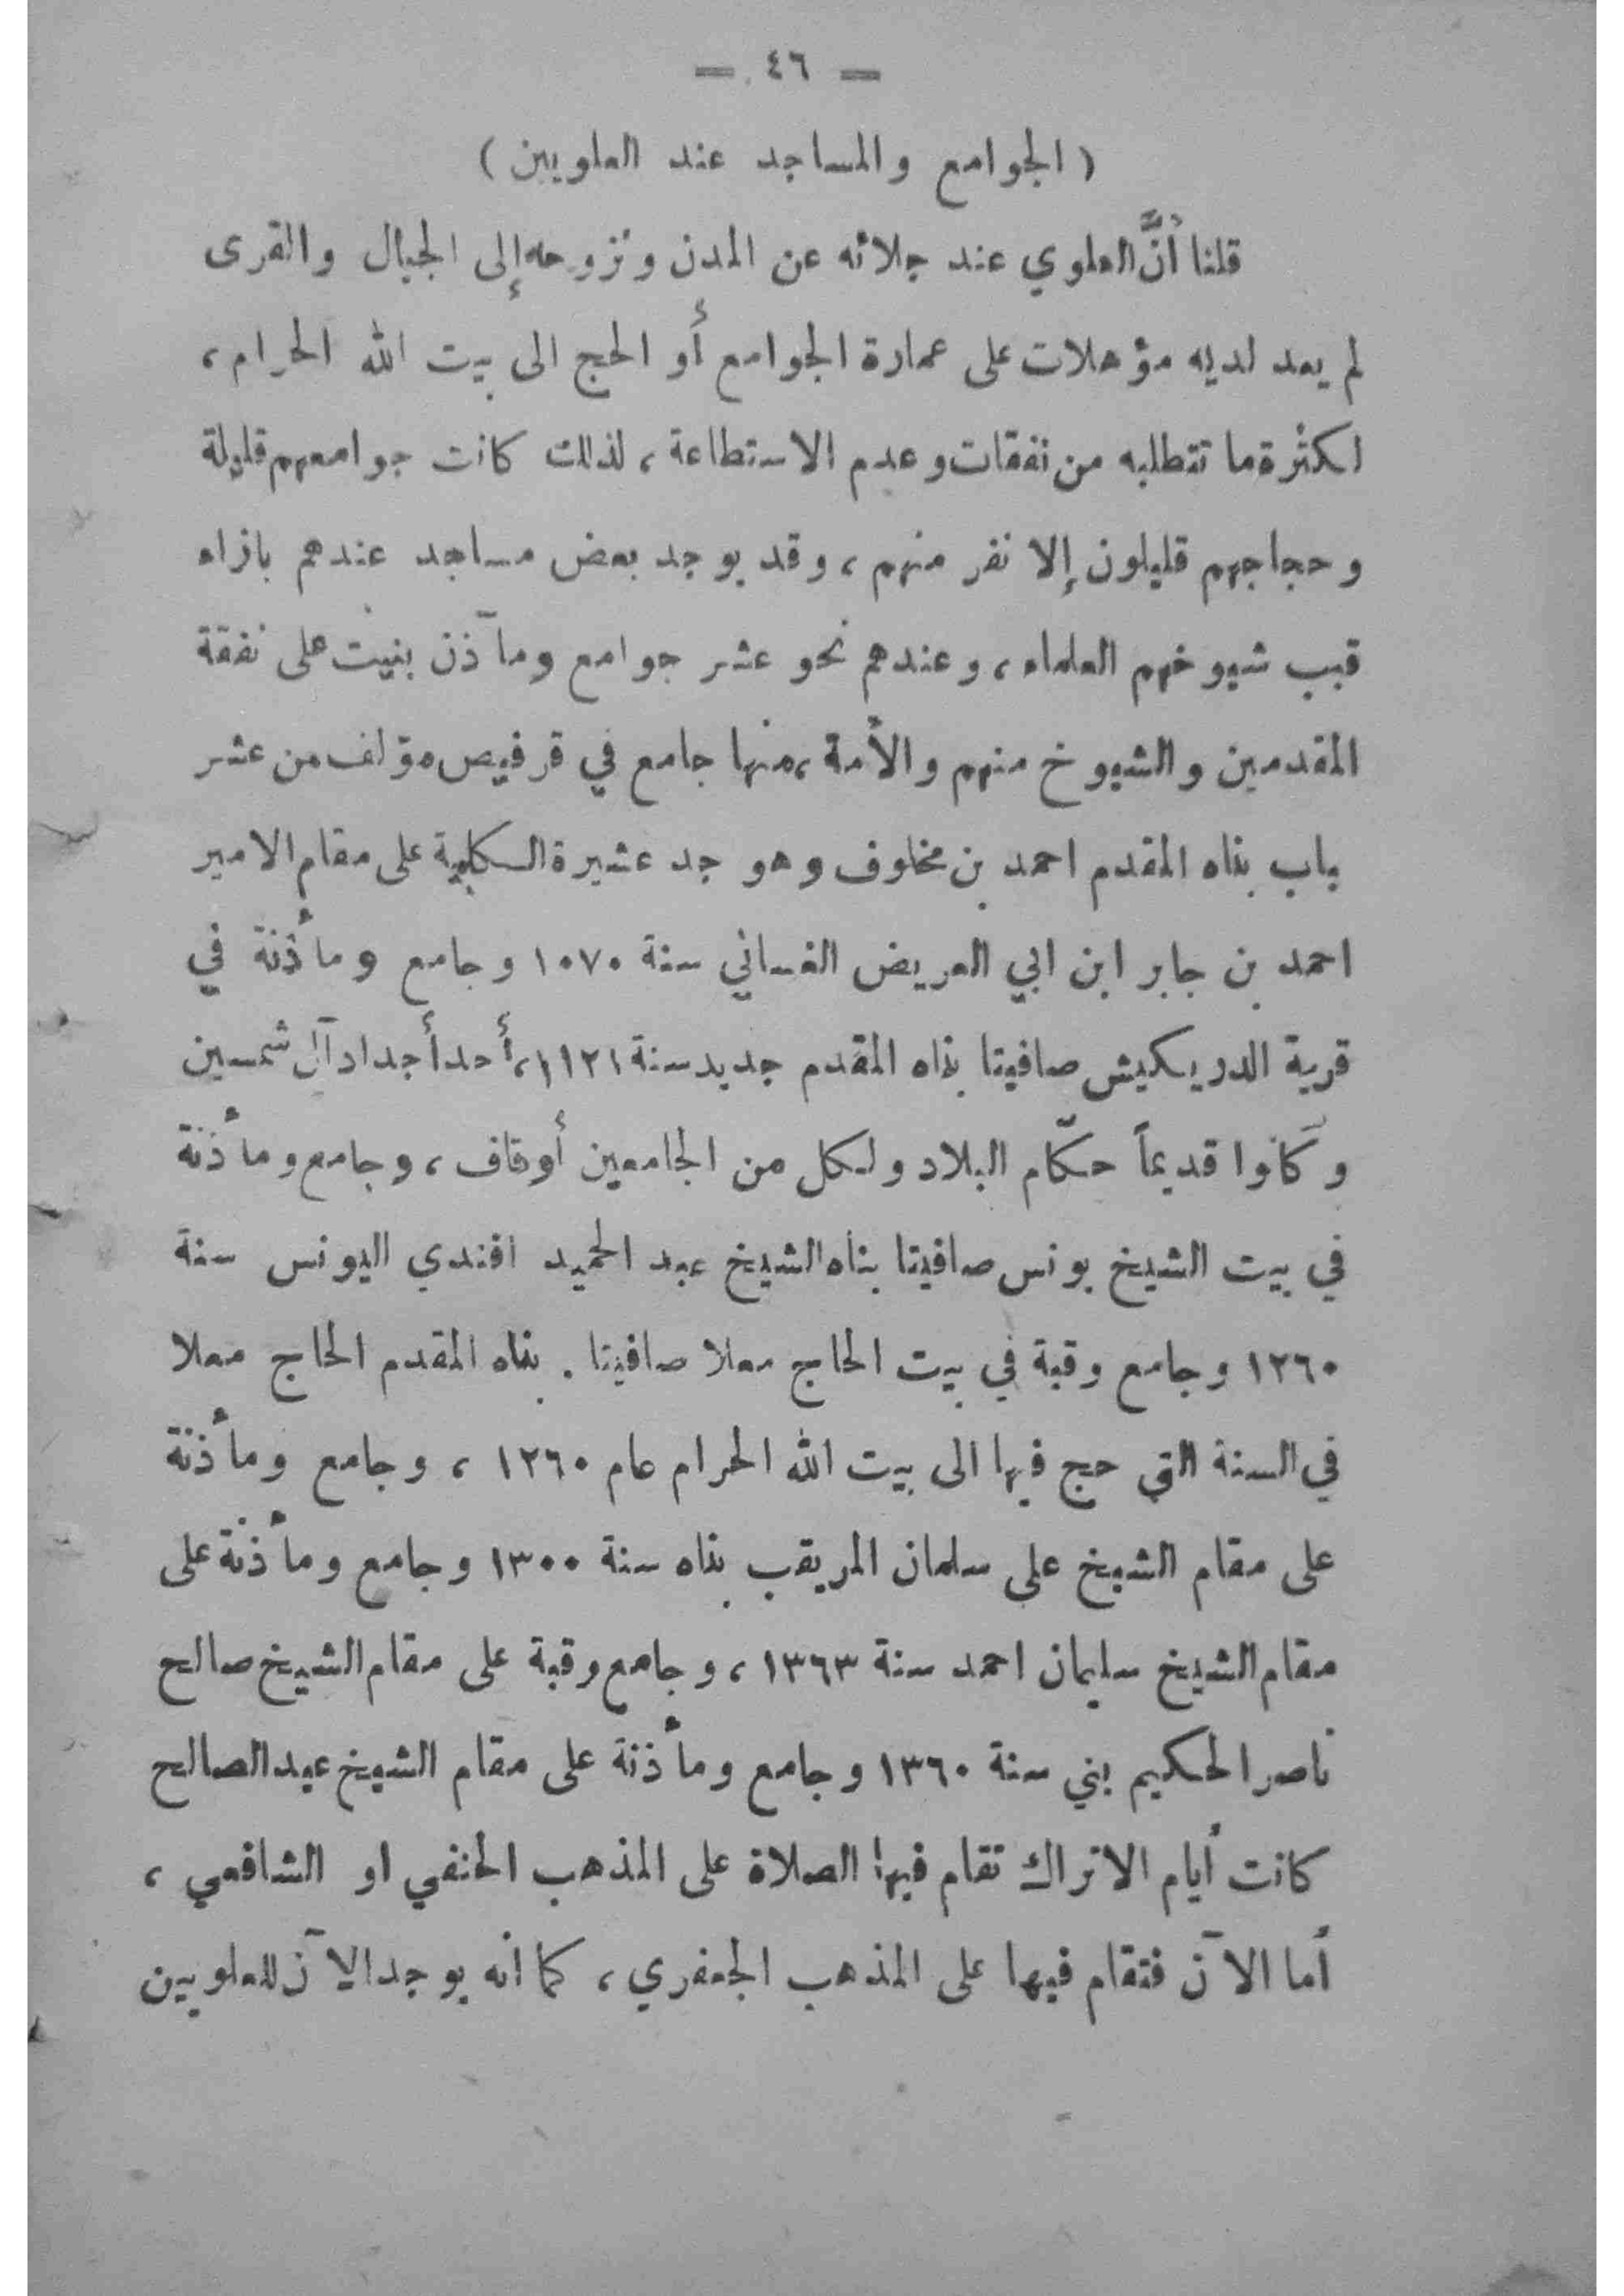 — ٤٦ —
( الجوامع والمساجد عند العلويين )
قلنا أنَّ العلوي عند جلائه عن المدن ونزوحه إلى الجبال والقرى
لم يعد لديه مؤهلات على عمارة الجوامع أو الحج الى بيت الله الحرام ،
لكثرة ما تتطلبه من نفقات وعدم الاستطاعة ، لذلك كانت جوامعهم قليلة
وحجاجهم قليلون إلا نفر منهم ، وقد يوجد بعض مساجد عندهم بازاء
قبب شيوخهم العلماء ، وعندهم نحو عشر جوامع ومآذن بنيت على نفقة
المقدمين والشيوخ منهم والأمة ، منها جامع في قرفيص مؤلف من عشر
باب بناه المقدم احمد بن مخلوف وهو جد عشيرة الكلبية على مقام الامير
احمد بن جابر ابن ابي العريض الغساني سنة ١٠٧٠ وجامع ومأذنة في
قرية الدريكيش صافيتا بناه المقدم جديد سنة ١١٢١ ، أحد أجداد آل شمسين
وكانوا قديماً حكّام البلاد ولكل من الجامعين أوقاف ، وجامع ومأذنة
في بيت الشيخ يونس صافيتا بناه الشيخ عبد الحميد افندي اليونس سنة
١٢٦٠ وجامع وقبة في بيت الحاج معلا صافيتا . بناه المقدم الحاج معلا
في السنة التي حج فيها الى بيت الله الحرام عام ١٢٦٠ ، وجامع ومأذنة
على مقام الشيخ علي سلمان المريقب بناه سنة ١٣٠٠ وجامع ومأذنة على
مقام الشيخ سليمان احمد سنة ١٣٦٣ ، وجامع وقبة على مقام الشيخ صالح
ناصر الحكيم بني سنة ١٣٦٠ وجامع ومأذنة على مقام الشيخ عيد الصالح
كانت أيام الاتراك تقام فيها الصلاة على المذهب الحنفي او الشافعي ،
أما الآن فتقام فيها على المذهب الجعفري ، كما انه يوجد الآن للعلويين